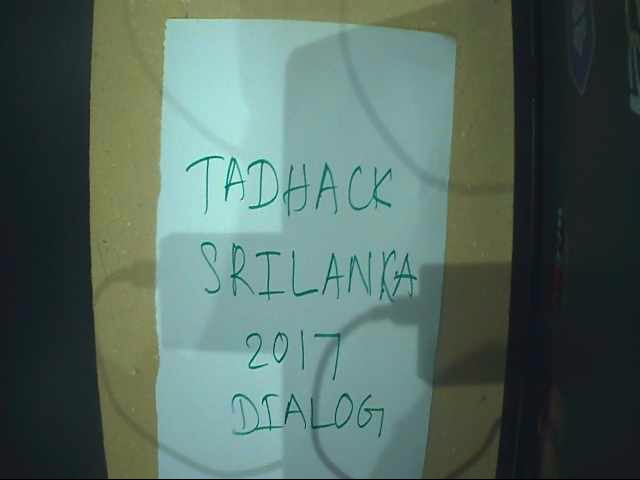 TADHACK
SRILANKA
2017
DIALOG